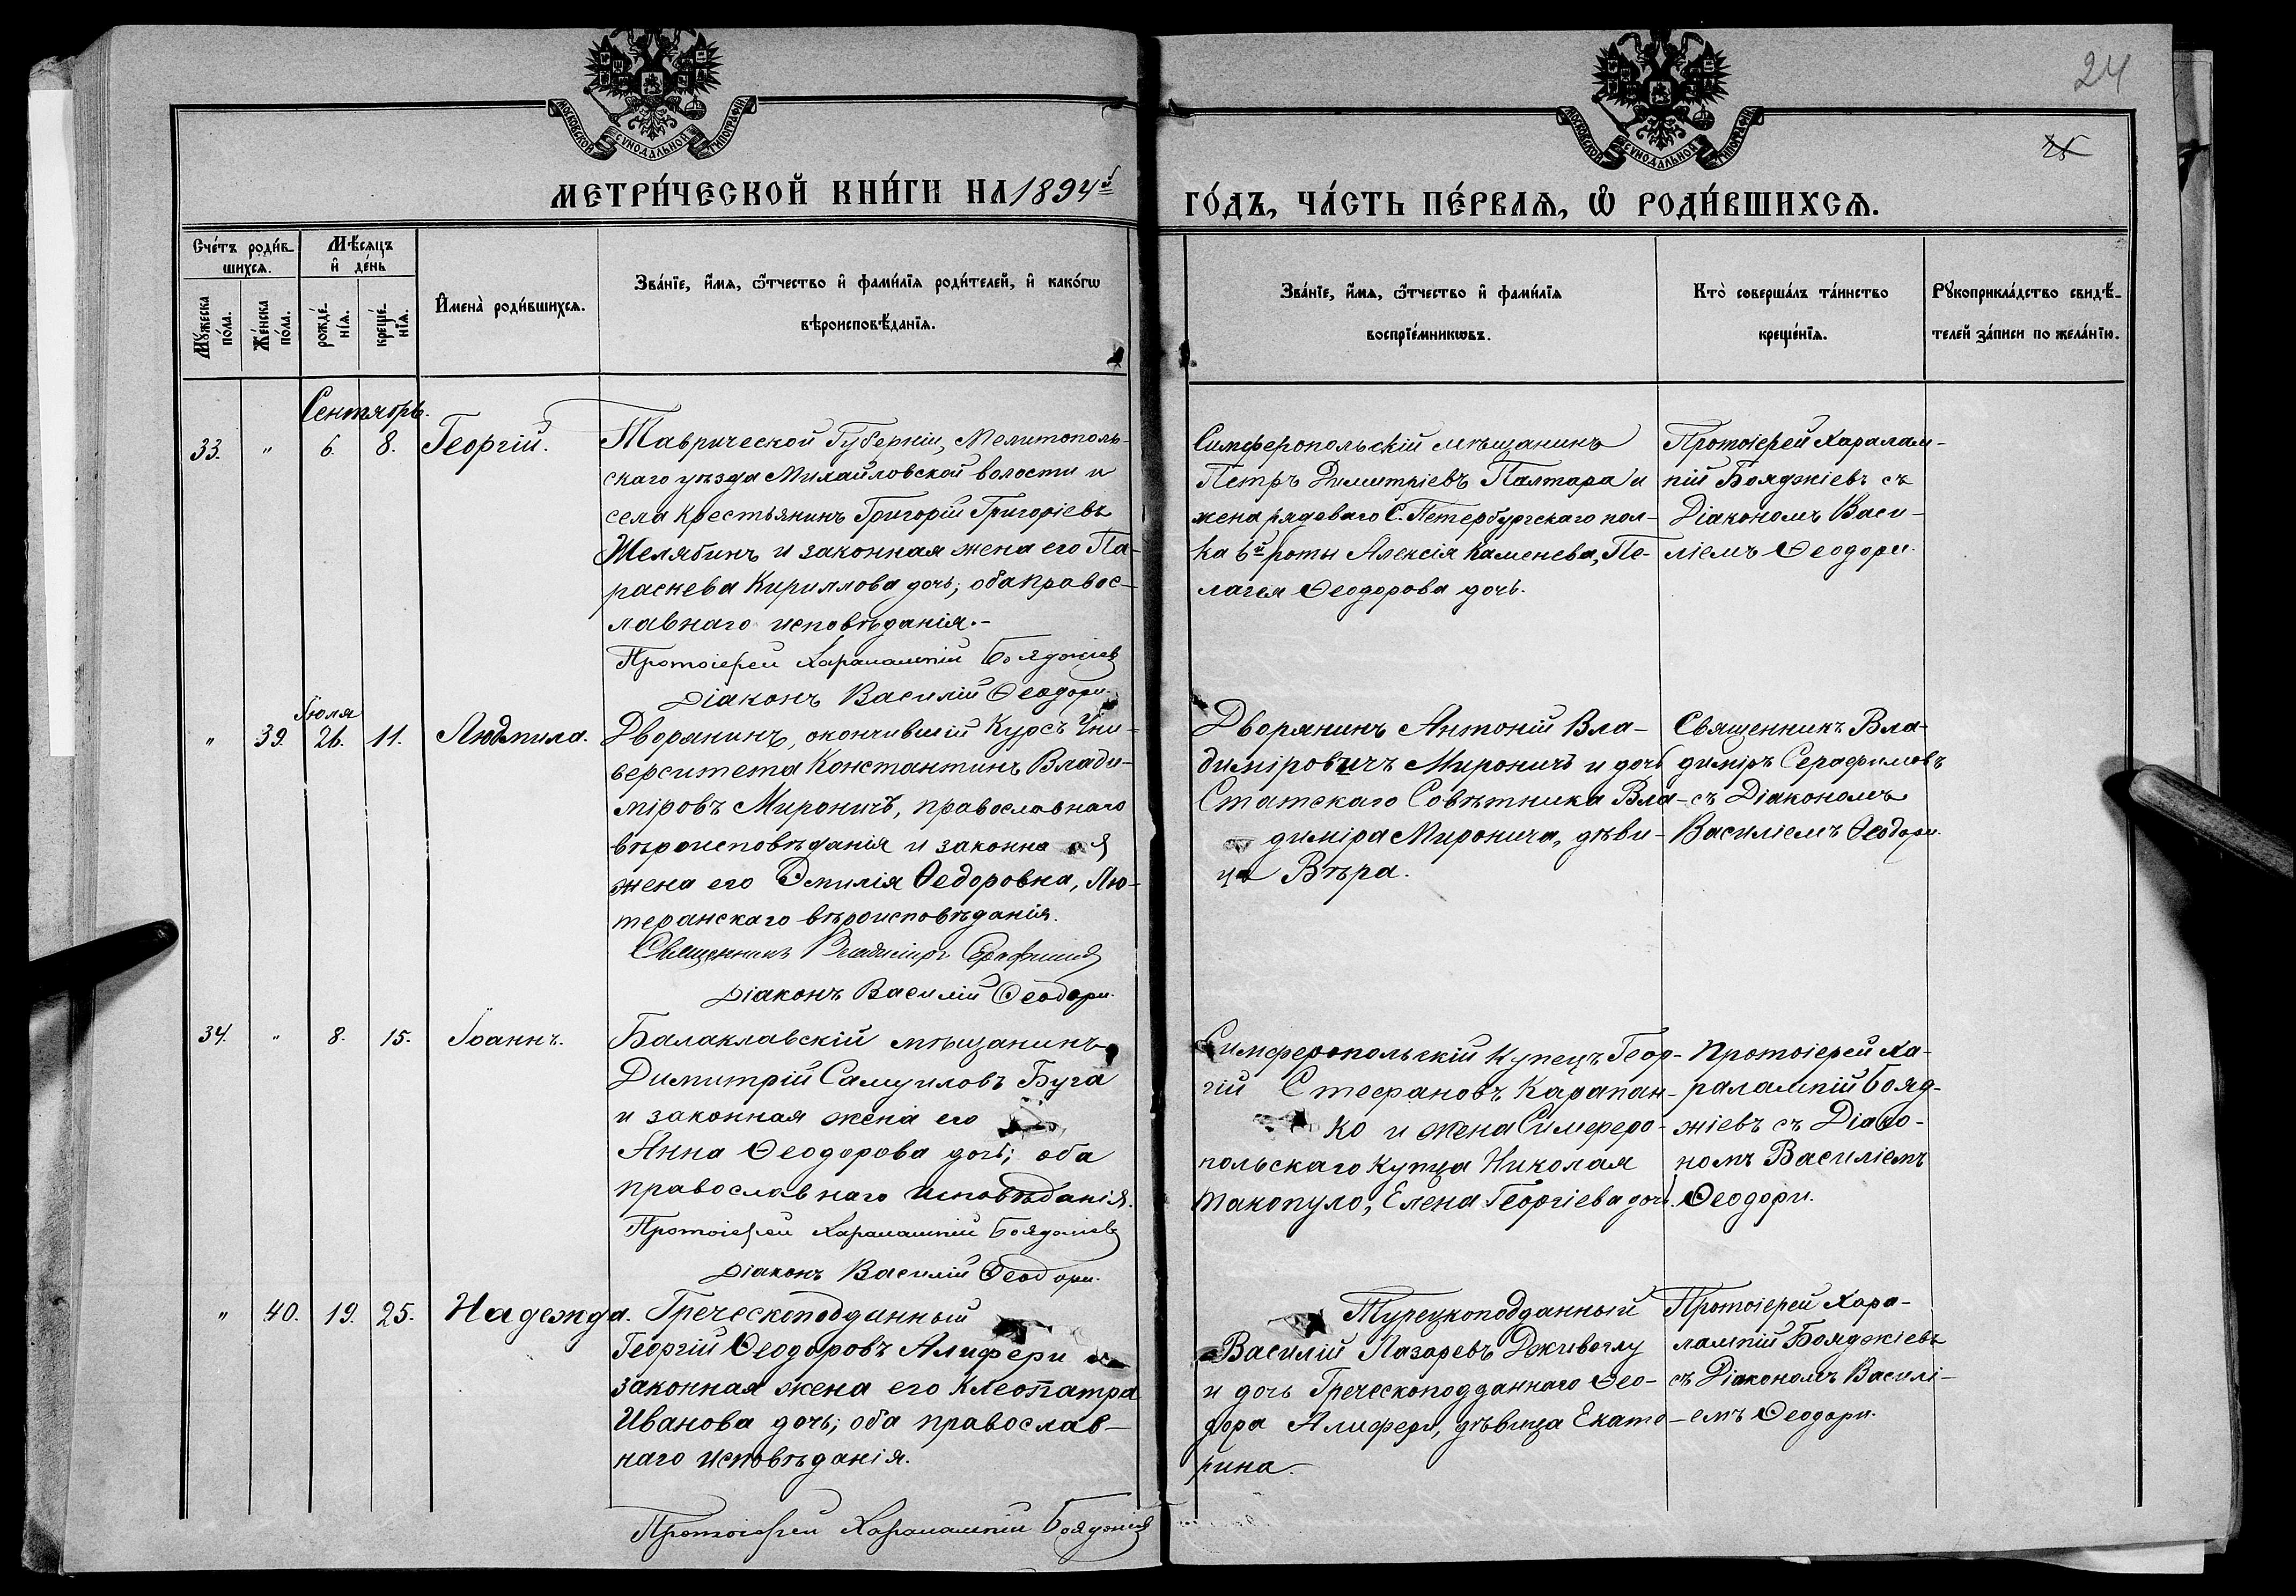 24
25
МОСКОВСКОЙ СѴНОДАЛЬНОЙ ТИПОГРАФІИ
МОСКОВСКОЙ СѴНОДАЛЬНОЙ ТИПОГРАФІИ
МЕТРИ́ЧЕСКОЙ КНИ́ГИ НА 1894й
ГО́ДЪ, ЧА́СТЬ ПЕ́РВАѦ, Ѡ РОДИ́ВШИХСѦ.
Сче́тъ роди́в
шихсѧ.
Мѣ́сѧцъ
и҆ де́нь
Мꙋ́жеска
по́ла.
Же́нска
по́ла.
рожде́-
нїѧ.
креще́-
нїѧ.
И҆мена̀ роди́вшихсѧ.
Зва́нїе, и҆́мѧ, ѻ҆́тчество и҆ фами́лїѧ роди́телей, и҆ како́гѡ
вѣроисповѣ́данїѧ.
Зва́нїе, и҆́мѧ, ѻ҆́тчество и҆ фами́лїѧ
воспрїе́мникѡвъ.
Кто̀ соверша́лъ та́инство
креще́нїѧ.
Рꙋкоприкла́дство свидѣ́-
телей за́писи по жела́нїю.
Сентябрь.
33. " 6. 8. Георгій.
Таврической Губерніи, Мелитополь-
скаго уѣзда Михайловской волости и
села крестьянинъ Григорій Григоріевъ
Желябинъ и законная жена его Па-
раскева Кириллова дочь; оба правос-
лавнаго исповѣданія.-
Протоіерей Харалампій Бояджіевъ
Діаконъ Василій Ѳеодори.
Симферопольскій мѣщанинъ
Петръ Димитріевъ Палтара и
жена рядоваго С. Петербургскаго пол-
ка 6й роты Алексія Каменева, Пе-
лагея Ѳеодорова дочь.
Протоіерей Харалам-
пій Бояджіевъ съ
Діакономъ Васи-
ліемъ Ѳеодори.
Іюля
" 39. 26. 11. Людмила.
Дворянинъ, окончившій Курсъ Уни-
верситета Константинъ Влади-
міровъ Мироничъ, православнаго
вѣроисповѣданія и законная
жена его Эмилія Ѳедоровна, Лю-
теранскаго вѣроисповѣданія.
Священникъ Владиміръ Серафимовъ
Діаконъ Василій Ѳеодори.
Дворянинъ Антоній Вла-
диміровичъ Мироничъ и дочь
Статскаго Совѣтника Вла-
диміра Миронича, дѣви-
ца Вѣра.
Священникъ Вла-
диміръ Серафимовъ
съ Діакономъ
Василіемъ Ѳеодори.
34. " 8. 15. Іоаннъ.
Балаклавскій мѣщанинъ
Димитрій Самуиловъ Буга
и законная жена его
Анна Ѳеодорова дочь; оба
православнаго исповѣданія.
Протоіерей Харалампій Бояджіевъ
Діаконъ Василій Ѳеодори.
Симферопольскій Купецъ Геор-
гій Стефановъ Карапан-
ко и жена Симферо-
польскаго купца Николая
Такопуло, Елена Георгіева дочь.
Протоіерей Ха-
ралампій Бояд-
жіевъ съ Діако-
номъ Василіемъ
Ѳеодори.
" 40. 19. 25. Надежда.
Греческоподданный
Георгій Ѳеодоровъ Алифери и
законная жена его Клеопатра
Иванова дочь; оба православ-
наго исповѣданія.
Протоіерей Харалампій Бояджіевъ
Турецкоподданный
Василій Лазаревъ Дживоглу
и дочь Греческоподданнаго Ѳео-
дора Алифери, дѣвица Екате-
рина.
Протоіерей Хара-
лампій Бояджіевъ
съ Діакономъ Василі-
емъ Ѳеодори.